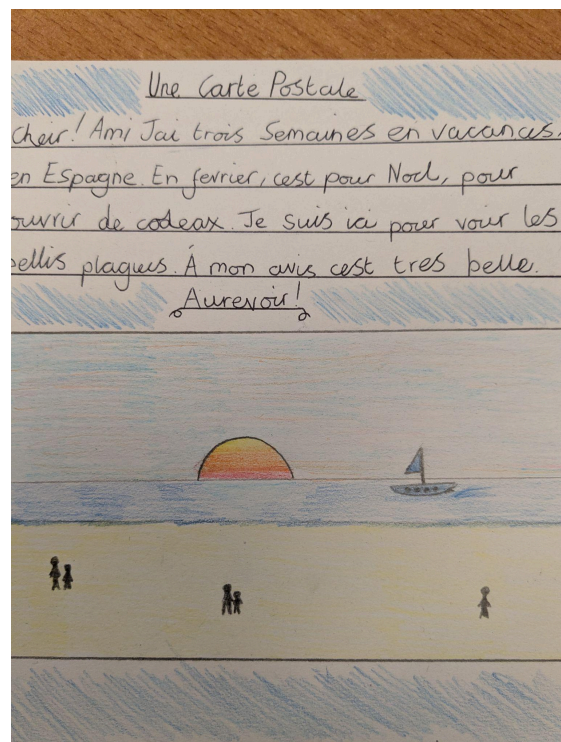 Une Carte Postale
Cheir! Ami Jai trois Semaines en vacances.
en Espagne. En fevrier, cest pour Noel, pour
ouvrir de codeaux. Je suis ici pour voir les
bellis plagues. Á mon avis cest tres belle.
Aurevoir!